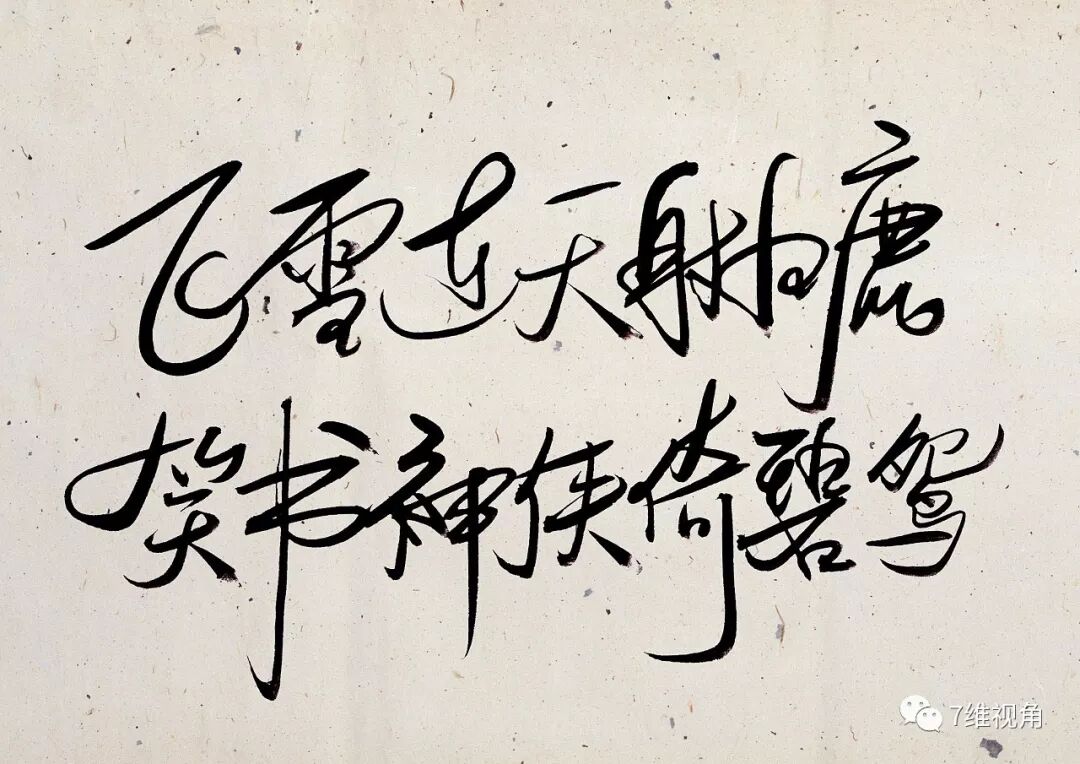 飞雪连天射白鹿
笑书神侠倚碧鸳
7维视角